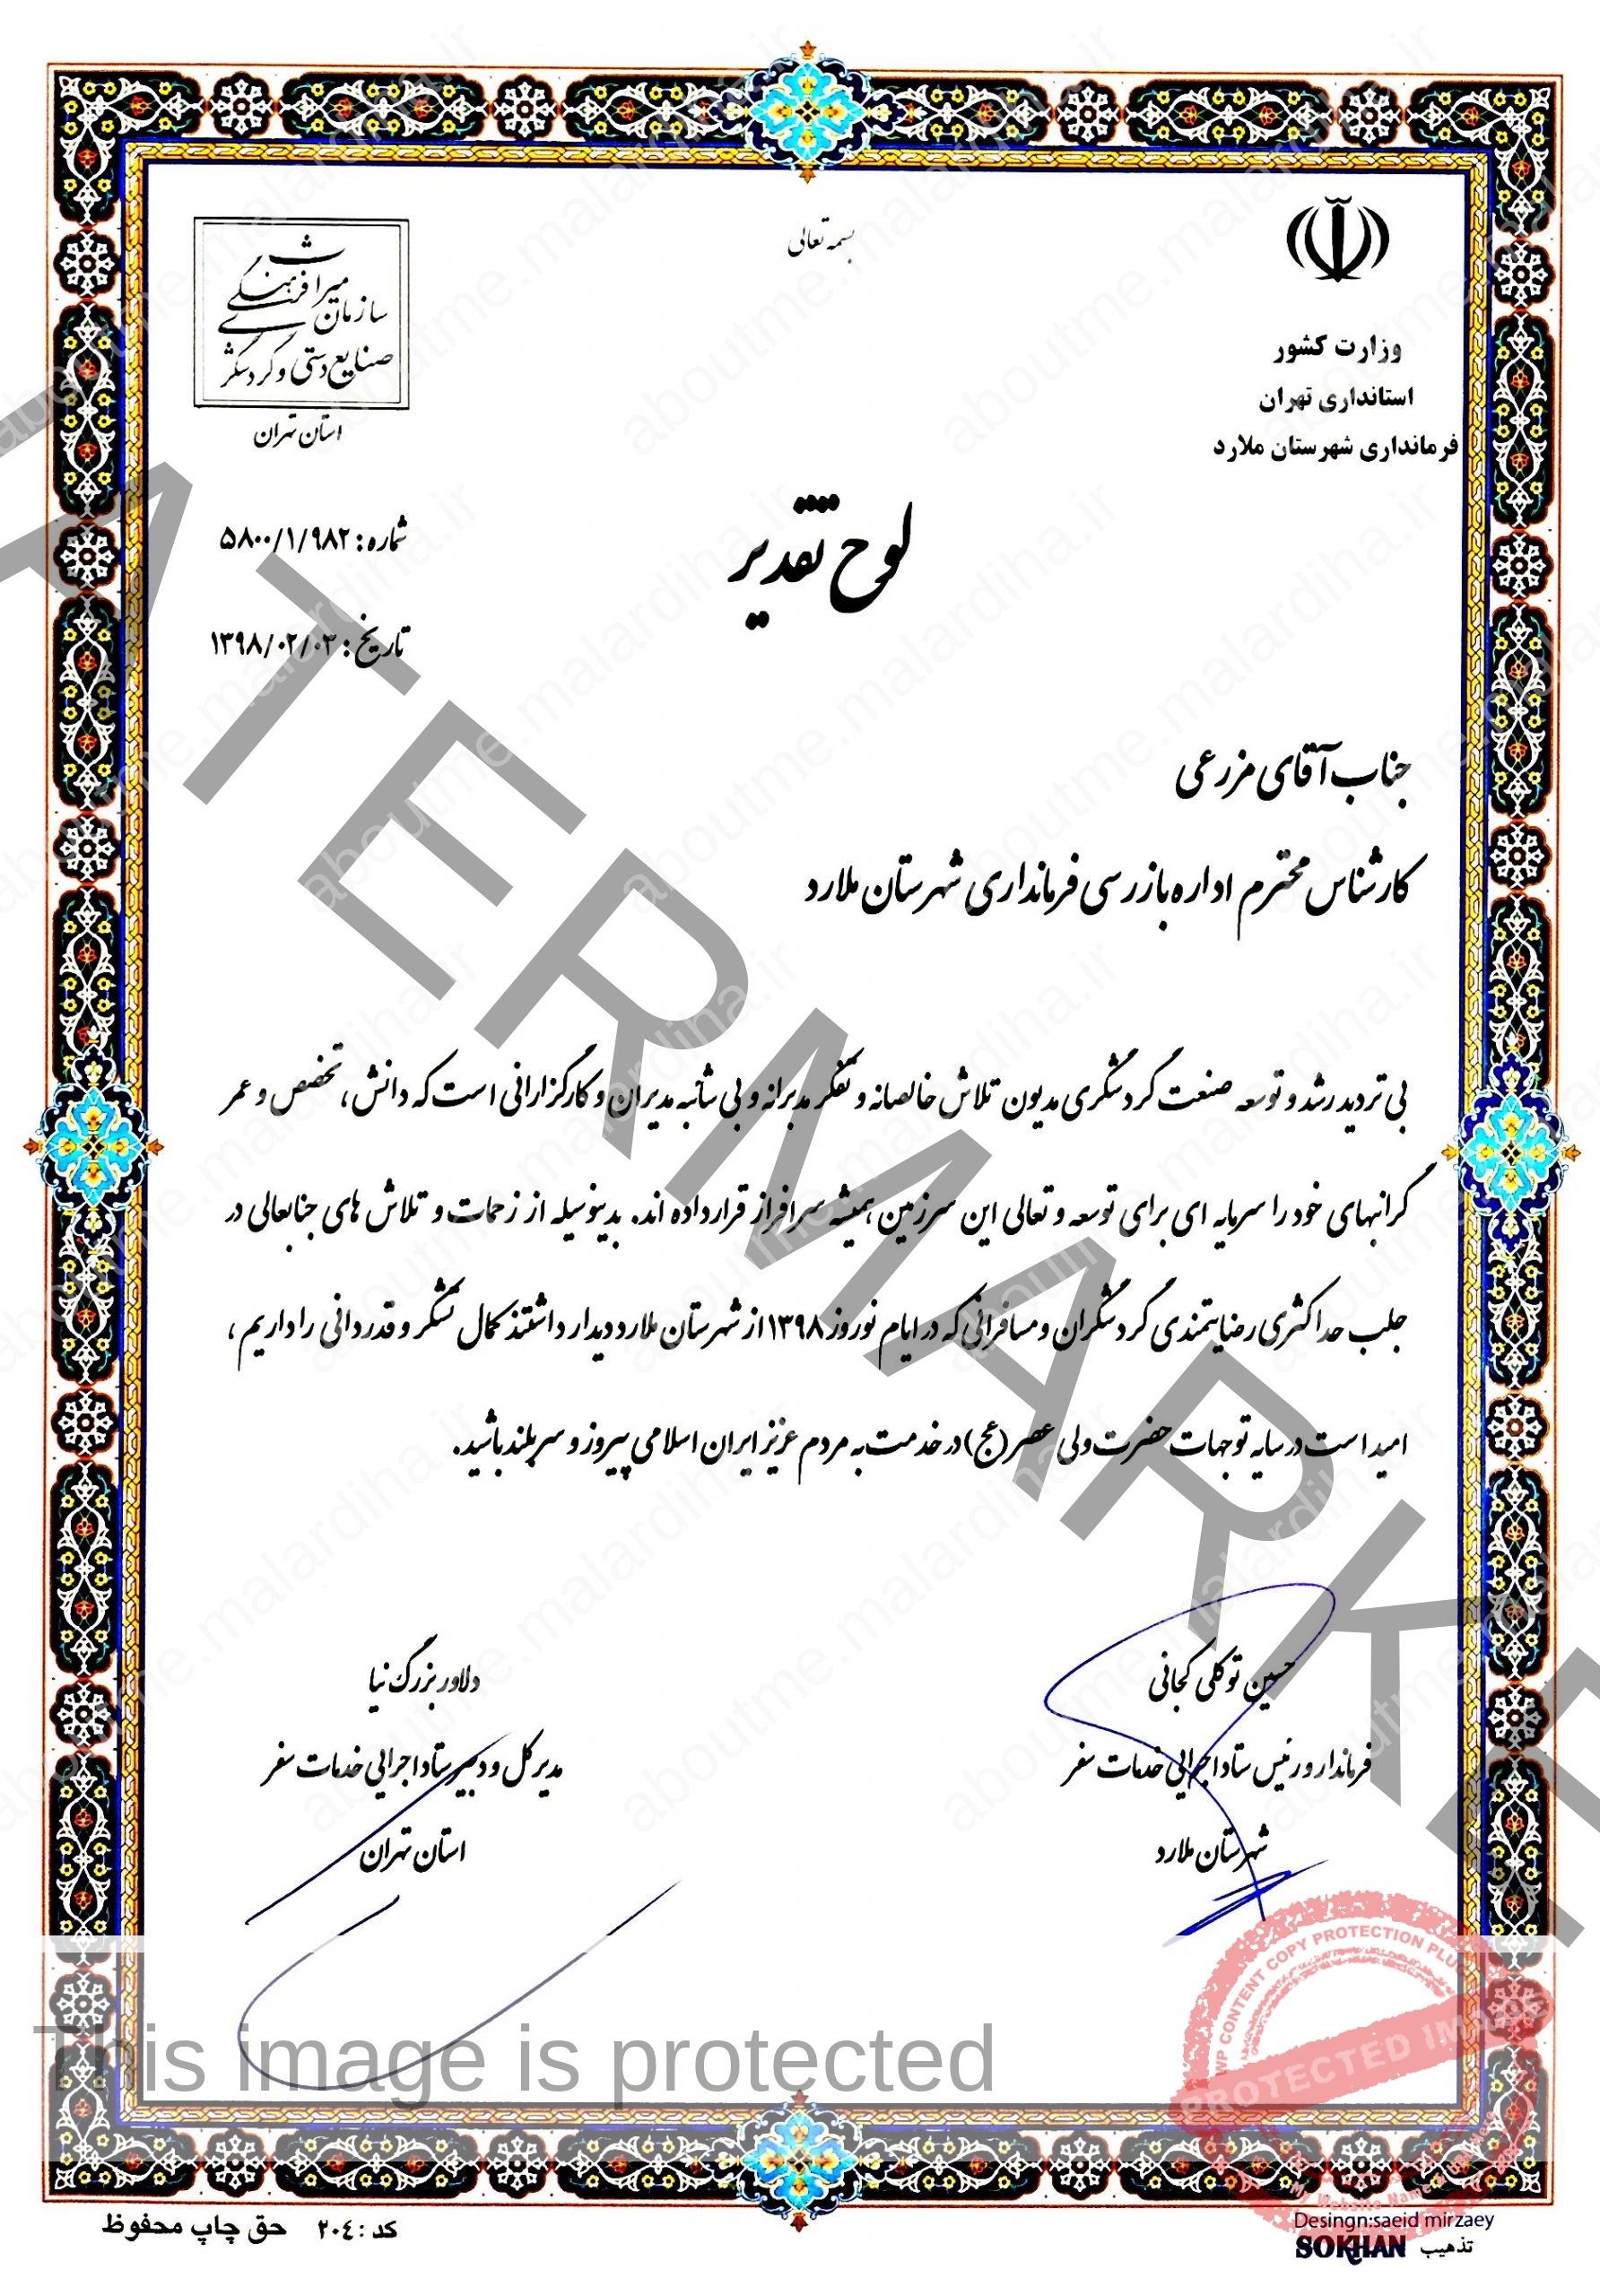 بسمه تعالی
وزارت کشور
استانداری تهران
فرمانداری شهرستان ملارد
سازمان میراث فرهنگی
صنایع دستی و گردشگری
استان تهران
شماره : ۵۸۰۰/۱/۹۸۲
تاریخ : ۱۳۹۸/۰۲/۰۳
لوح تقدیر
جناب آقای مزرعی
کارشناس محترم اداره بازرسی فرمانداری شهرستان ملارد
بی تردید رشد و توسعه صنعت گردشگری مدیون تلاش خالصانه و تفکر مدبرانه و بی شائبه مدیران و کارگزارانی است که دانش ، تخصص و عمر
گرانبهای خود را سرمایه ای برای توسعه و تعالی این سرزمین همیشه سرافراز قرار داده اند. بدینوسیله از زحمات و تلاش های جنابعالی در
جلب حداکثری رضایتمندی گردشگران و مسافرانی که در ایام نوروز ۱۳۹۸ از شهرستان ملارد دیدار داشتند کمال تشکر و قدردانی را داریم ،
امید است در سایه توجهات حضرت ولی عصر (عج) در خدمت به مردم عزیز ایران اسلامی پیروز و سربلند باشید.
حسین توکلی کجانی
فرماندار و رئیس ستاد اجرایی خدمات سفر
شهرستان ملارد
دلاور بزرگ نیا
مدیر کل و دبیر ستاد اجرایی خدمات سفر
استان تهران
WATERMARKED
This image is protected
WP CONTENT COPY PROTECTION PLUGIN
PROTECTED IMAGE
My Website Name
aboutme.malardiha.ir
Desingn:saeid mirzaey
تذهیب SOKHAN
کد : ۲۰٤ حق چاپ محفوظ